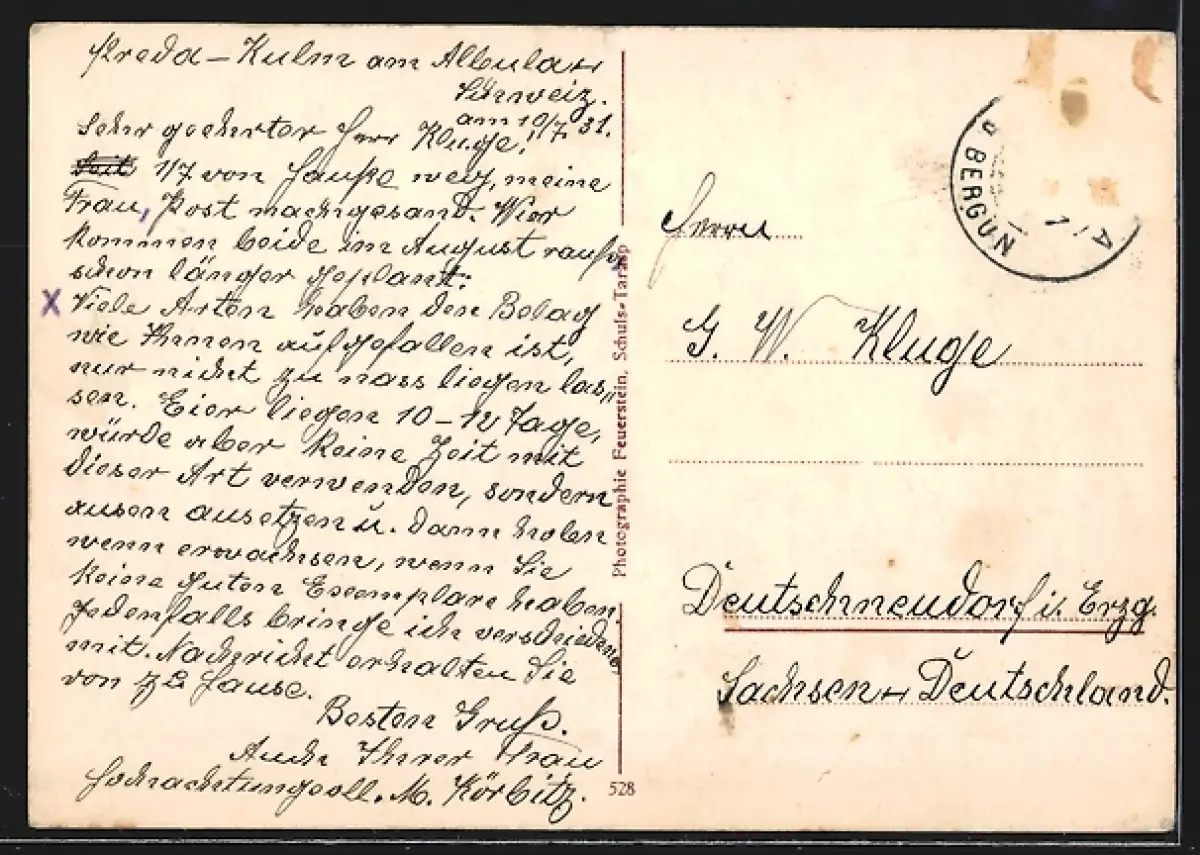 Preda - Kulm am Albula
Schweiz.
am 10/7 31.
Sehr geehrter Herr Kluge!
Seit 1/7 von Hause weg, meine
Frau, Post nachgesand. Wier
kommen beide im August rauf,
schon länger geplant.
X Viele Arten haben den Belag
wie Ihnen aufgefallen ist,
nur nicht zu nass liegen las„
sen. Eier liegen 10-12 Tage,
würde aber keine Zeit mit
dieser Art verwenden, sondern
ausen ausetzen u. dann holen
wenn erwachsen, wenn Sie
keine guten Exemplare haben.
Jedenfalls bringe ich verschiedenes
mit. Nachricht erhalten Sie
von zu Hause.
Besten Gruß.
Auch Ihrer Frau
Hochachtungsvoll. M. Körbitz.
Photographie Feuerstein, Schuls-Tarasp
528
BERGÜN
Herrn
G. W. Kluge
Deutschneudorf i. Erzg.
Sachsen Deutschland.